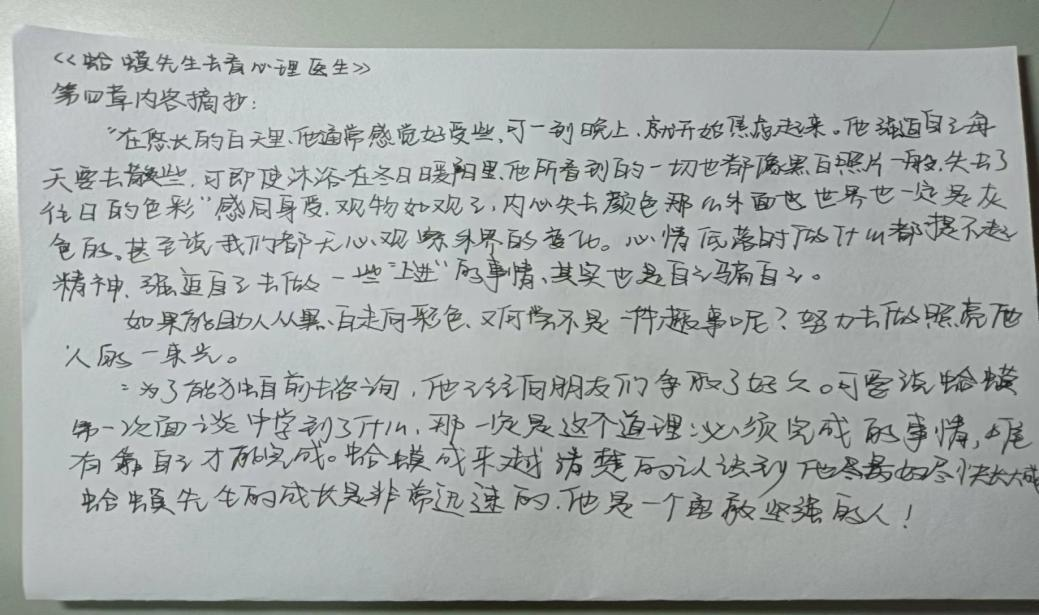 《蛤蟆先生去看心理医生》
第四章内容摘抄：
“在悠长的白天里、他通常感觉好受些、可一到晚上、就开始焦虑起来。他强迫自己每
天要去散些、可即使沐浴在冬日暖阳里、他所看到的一切也都像黑白照片一般、失去了
往日的色彩”感同身受、观物如观己，内心失去颜色那么外面的世界也一定是灰
色的。甚至说我们都无心观察外界的变化。心情低落时做什么都提不起
精神、强迫自己去做一些“上进”的事情、其实也是自己骗自己。
如果能助人从黑白走向彩色、又何尝不是一件趣事呢？努力去做照亮他
人的一束光。
为了能独自前去咨询，他已经向朋友们争取了好久。可要说蛤蟆
第一次面谈中学到了什么，那一定是这个道理：必须完成的事情，唯
有靠自己才能完成。蛤蟆越来越清楚的认识到他最好尽快长大
蛤蟆先生的成长是非常迅速的、他是一个勇敢坚强的人！